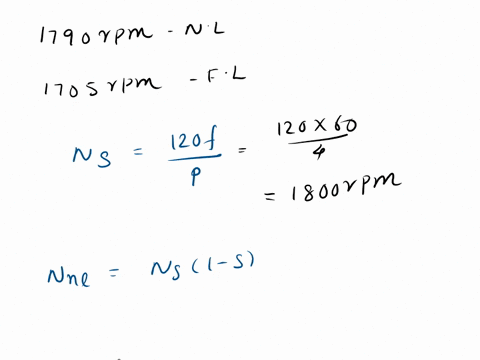 1790 rpm - N.L
1705 rpm - F.L
Ns = 120f / P = 120 × 60 / 4
= 1800 rpm
Nnl = Ns (1-s)